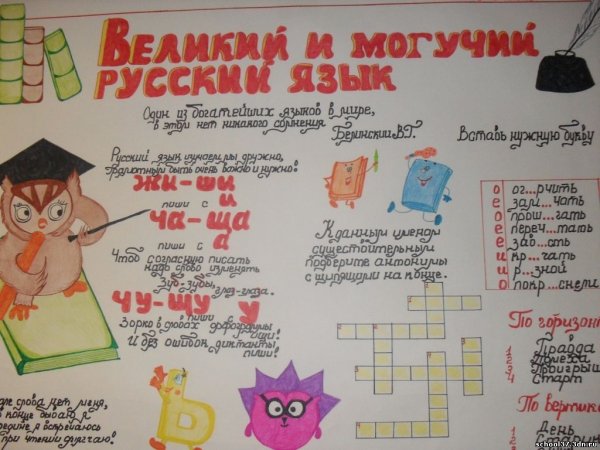 Великий и могучий
русский язык
Один из богатейших языков в мире,
в этом нет никакого сомнения
Белинский В.Г.
Русский язык изучаем мы дружно,
Грамотным быть очень важно и нужно!
жи-ши
пиши с и
ча-ща
пиши с а
Чтоб согласную писать
надо слово изменять
Зуб-зубы,
глаз-глаза.
чу-щу
пиши у
Зорко в словах орфограммы
ищи!
И без ошибок диктанты
пиши!
слова нет меня,
конце бываю я
я встречаюсь
при чтении
К данным именам
существительным
подберите антонимы
с шипящими на конце.
Вставь нужную букву
ог...рчить
зам...чать
прош...гать
переч...тать
зав...сть
р...зной
покр...снели
По горизон
1 Правда
2
3 Проигрыш
4 Старт
По вертик
1 День
2
ь
school37.3dn.ru